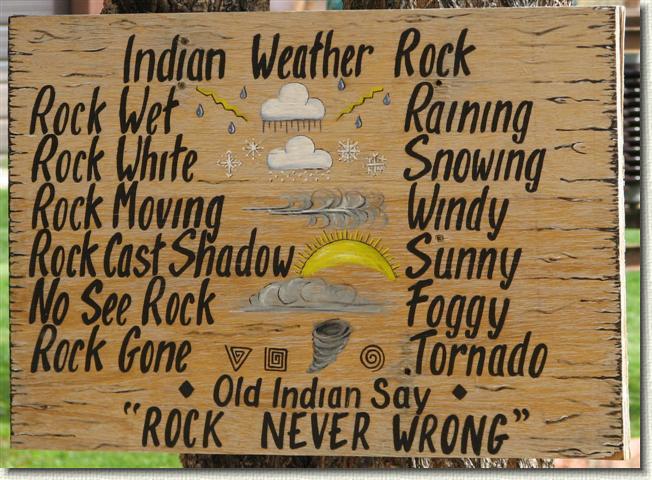 Indian Weather Rock
Rock Wet Raining
Rock White Snowing
Rock Moving Windy
Rock Cast Shadow Sunny
No See Rock Foggy
Rock Gone .Tornado
Old Indian Say
"ROCK NEVER WRONG"